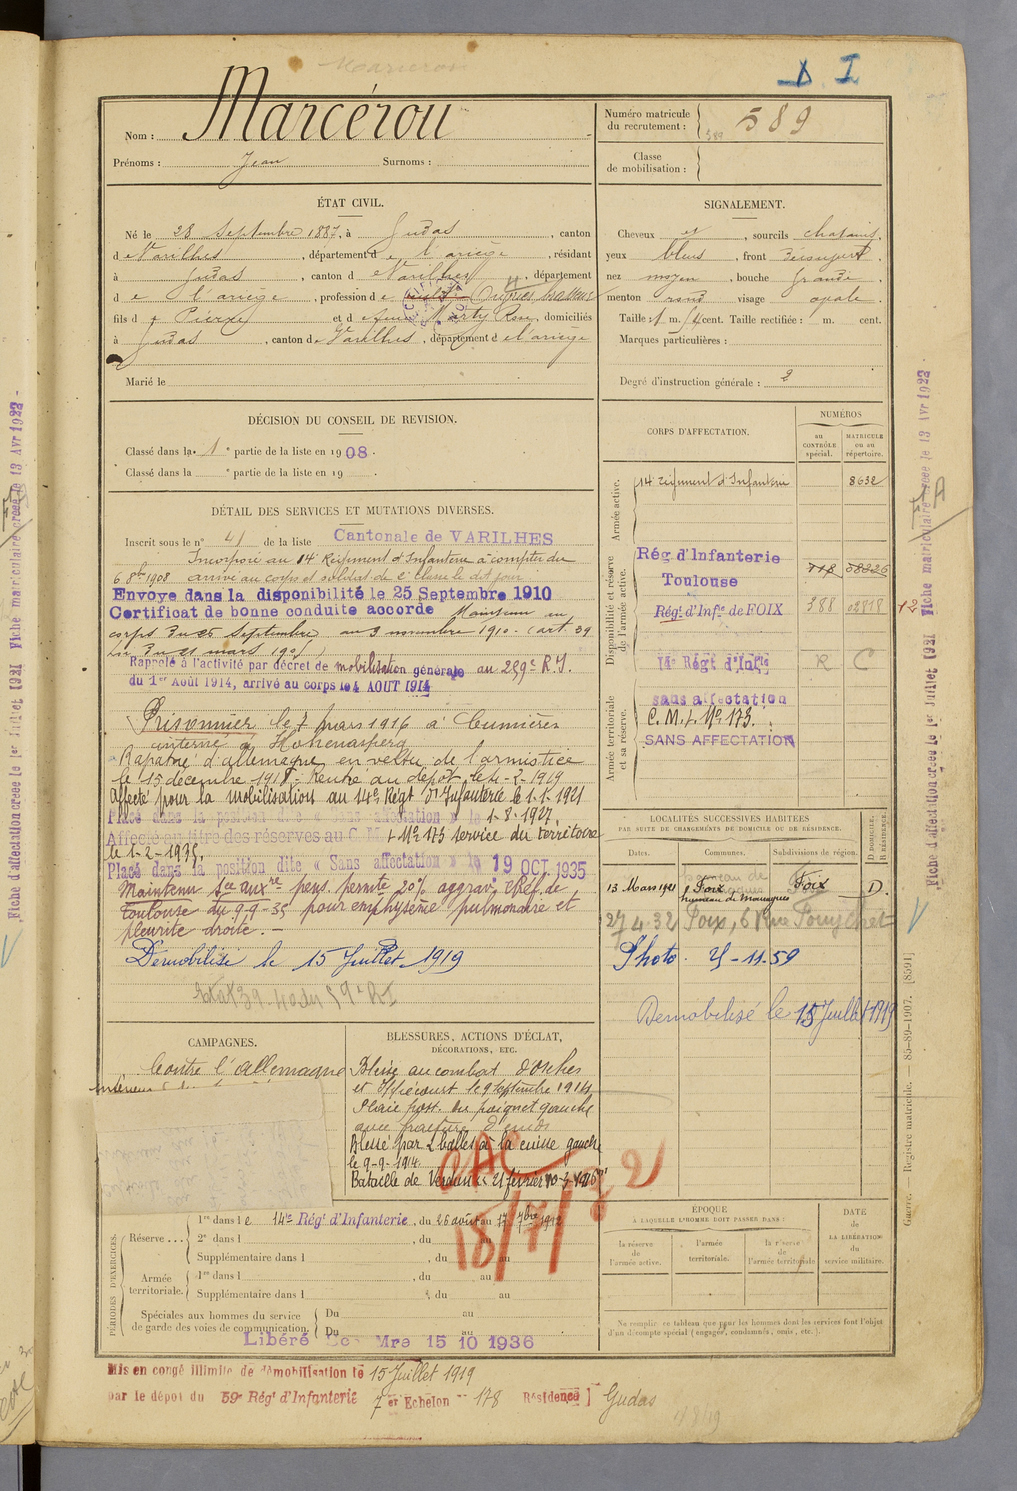 Marcérou
D I
Nom : Marcérou
Prénoms : Jean Surnoms :
Numéro matricule du recrutement : 589 589
Classe de mobilisation :
ÉTAT CIVIL.
Né le 28 Septembre 1887, à Gudas, canton
de Varilhes, département de l'ariège, résidant
à Gudas, canton de Varilhes, département
de l'ariège, profession de
fils de Pierre et de feue Marty Rose, domiciliés
à Gudas, canton de Varilhes, département de l'ariège
Marié le
SIGNALEMENT.
Cheveux et, sourcils chatains,
yeux bleus, front découvert
nez moyen, bouche grande
menton rond visage ovale
Taille : 1 m. cent. Taille rectifiée : m. cent.
Marques particulières :
Degré d'instruction générale : 2
DÉCISION DU CONSEIL DE REVISION.
Classé dans la 1e partie de la liste en 1908.
Classé dans la e partie de la liste en 19
DÉTAIL DES SERVICES ET MUTATIONS DIVERSES.
Inscrit sous le n° 41 de la liste Cantonale de VARILHES
Incorporé au 14e Régiment d'Infanterie à compter du
6 8bre 1908 arrivé au corps et soldat de 2e classe le dit jour
Envoyé dans la disponibilité le 25 Septembre 1910
Certificat de bonne conduite accordé Maintenu au
corps du 25 Septembre au 3 novembre 1910. (art. 39
Loi du 21 mars 1905)
Rappelé à l'activité par décret de mobilisation générale au 259e R.I.
du 1er Août 1914, arrivé au corps le 4 AOUT 1914
Prisonnier le 7 mars 1916 à Cumières
interné à Hohenasperg
Rapatrié d'allemagne en vertu de l'armistice
le 15 décembre 1918. Rentré au dépôt le 4-2-1919
Affecté pour la mobilisation au 14e Régt d'Infanterie le 1.1.1921
Placé dans la position dite « Sans affectation » le 1-8-1927.
Affecté au titre des réserves au C.M.I. No 173 service du territoire
le 1-2-1935.
Placé dans la position dite « Sans affectation » le 19 OCT. 1935
Maintenu Sce auxre pens. permte 20% aggrav. CRéf. de
Toulouse du 9-9-35 pour emphysème pulmonaire et
pleurite droite. -
Démobilisé le 15 Juillet 1919
CORPS D'AFFECTATION.
NUMÉROS
au CONTRÔLE spécial.
MATRICULE ou au répertoire.
Armée active.
14e régiment d'Infanterie 8632
Disponibilité et réserve de l'armée active.
Rég d'Infanterie
Toulouse
Régt d'Infie de FOIX 388 02818
14e Régt d'Infie R C
Armée territoriale et sa réserve.
sans affectation
C.M.I. No 173.
SANS AFFECTATION
LOCALITÉS SUCCESSIVES HABITÉES
PAR SUITE DE CHANGEMENTS DE DOMICILE OU DE RÉSIDENCE.
Dates. Communes. Subdivisions de région. D DOMICILE. R RÉSIDENCE.
13 Mars 1921 Foix Foix D.
27 4.32 Foix, 6 Rue
Photo. 25-11-59
Démobilisé le 15 Juillet 1919
CAMPAGNES.
Contre l'allemagne
BLESSURES, ACTIONS D'ÉCLAT,
DÉCORATIONS, ETC.
Blessé au combat d'Osches
et Ippécourt le 9 septembre 1914
Plaie post. du poignet gauche
avec fracture d'un os
Blessé par 2 balles à la cuisse gauche
le 9-9-1914.
Bataille de Verdun 21 février
CAC
18/7/32
PÉRIODES D'EXERCICES.
Réserve....
1re dans le 14e Régt d'Infanterie, du 26 août au 17 7bre 1912
2e dans l , du au
Supplémentaire dans l , du au
Armée territoriale.
1re dans l , du au
Supplémentaire dans l , du au
Spéciales aux hommes du service de garde des voies de communication.
Du au
Du au
Libéré Sce Mre 15 10 1936
ÉPOQUE
À LAQUELLE L'HOMME DOIT PASSER DANS :
la réserve de l'armée active.
l'armée territoriale.
la réserve de l'armée territoriale
DATE de LA LIBÉRATION du service militaire.
Ne remplir ce tableau que pour les hommes dont les services font l'objet
d'un décompte spécial (engagés, condamnés, omis, etc.).
Mis en congé illimité de démobilisation le 15 Juillet 1919
par le dépôt du 59e Régt d'Infanterie 7er Echelon n° 178 Résidence Gudas
Guerre. — Registre matricule. — 85-89-1907. [8591]
Fiche d'affectation créée le 1er Juillet 1921 Fiche matriculaire créée le 13 Avr 1922
Fiche d'affectation créée le 1er Juillet 1921 Fiche matriculaire créée le 13 Avr 1922